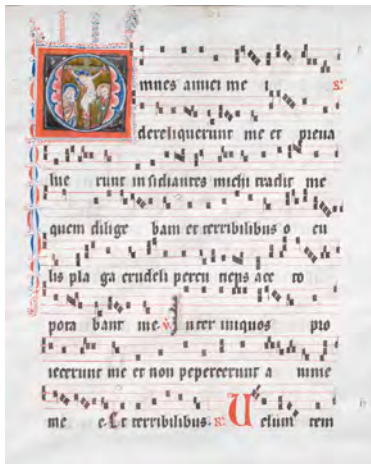 Omnes amici me i R.
dereliquerunt me et preua
lue runt insidiantes michi tradit me
quem dilige bam et terribilibus o cu
lis pla ga crudeli percu tiens ace to
pota bant me. V. Inter iniquos pro
iecerunt me et non pepercerunt a nime
me e. Et terribilibus. R. Uelum tem